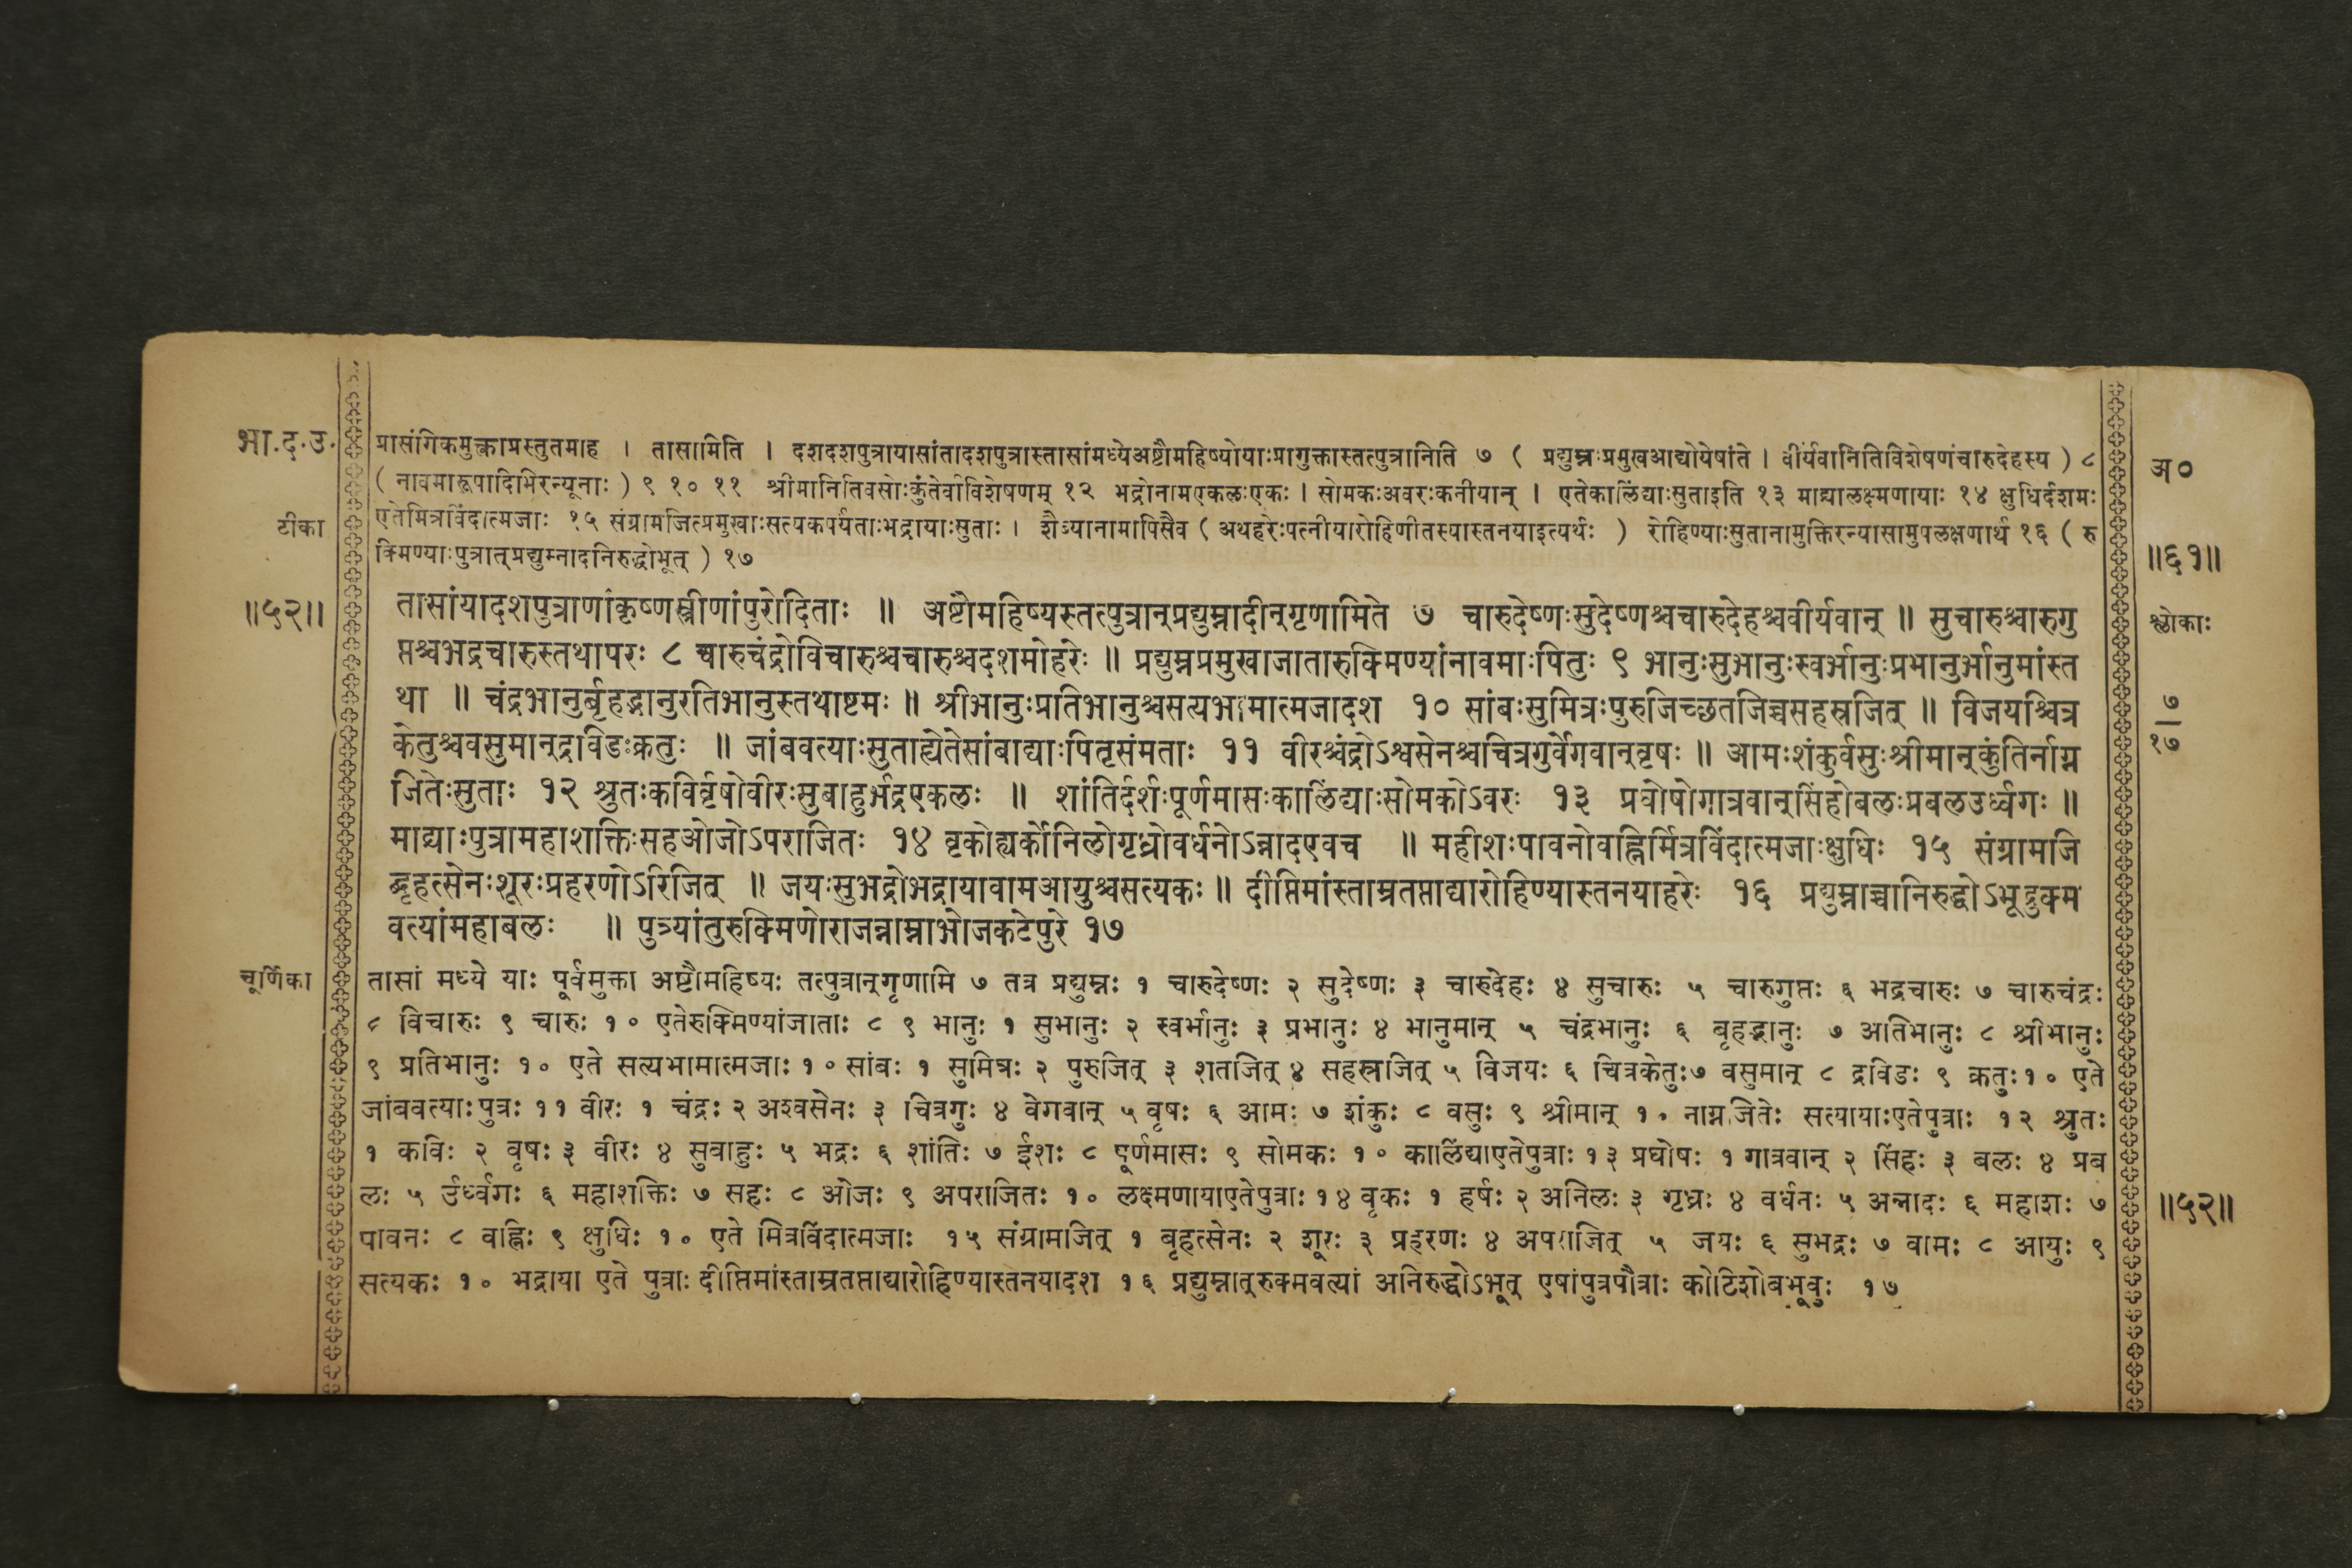 भा.द.उ.
प्रासंगिकमुक्त्वाप्रस्तुतमाह । तासामिति । दशदशपुत्रायासांतादशपुत्रास्तासांमध्येअष्टौमहिष्योयाःप्रागुक्तास्तत्पुत्रानिति ७ ( प्रद्युम्नःप्रमुखआद्योयेषांते । वीर्यवानितिविशेषणंचारुदेहस्य ) ८
अ०
( नावमारूपादिभिरन्यूनाः ) ९ १० ११ श्रीमानितिवसोःकुंतेर्वाविशेषणम् १२ भद्रोनामएकलःएकः । सोमकःअवरःकनीयान् । एतेकालिंद्याःसुताइति १३ माद्र्यालक्ष्मणायाः १४ क्षुधिर्दशमः
टीका
एतेमित्रविंदात्मजाः १५ संग्रामजित्प्रमुखाःसत्यकपर्यंताःभद्रायाःसुताः । शैब्यानामापिसैव ( अथहरेःपत्नीयारोहिणीतस्यास्तनयाइत्यर्थः ) रोहिण्याःसुतानामुक्तिरन्यासामुपलक्षणार्थं १६ ( रु
क्मिण्याःपुत्रात्प्रद्युम्नादनिरुद्धोभूत् ) १७
॥६१॥
॥५२॥
तासांयादशपुत्राणांकृष्णस्त्रीणांपुरोदिताः ॥ अष्टौमहिष्यस्तत्पुत्रान्प्रद्युम्नादीन्गृणामिते ७ चारुदेष्णःसुदेष्णश्चचारुदेहश्चवीर्यवान् ॥ सुचारुश्चारुगु
श्लोकाः
प्तश्चभद्रचारुस्तथापरः ८ चारुचंद्रोविचारुश्चचारुश्चदशमोहरेः ॥ प्रद्युम्नप्रमुखाजातारुक्मिण्यांनावमाःपितुः ९ भानुःसुभानुःस्वर्भानुःप्रभानुर्भानुमांस्त
था ॥ चंद्रभानुर्बृहद्भानुरतिभानुस्तथाष्टमः ॥ श्रीभानुःप्रतिभानुश्चसत्यभामात्मजादश १० सांबःसुमित्रःपुरुजिच्छतजिच्चसहस्रजित् ॥ विजयश्चित्र
७
१७
केतुश्चवसुमान्द्रविडःक्रतुः ॥ जांबवत्याःसुताह्येतेसांबाद्याःपितृसंमताः ११ वीरश्चंद्रोऽश्वसेनश्चचित्रगुर्वेगवान्वृषः ॥ आमःशंकुर्वसुःश्रीमान्कुंतिर्नाग्न
जितेःसुताः १२ श्रुतःकविर्वृषोवीरःसुबाहुर्भद्रएकलः ॥ शांतिर्दर्शःपूर्णमासःकालिंद्याःसोमकोऽवरः १३ प्रघोषोगात्रवान्सिंहोबलःप्रबलउर्ध्वगः ॥
माद्र्याःपुत्रामहाशक्तिःसहओजोऽपराजितः १४ वृकोह्यर्कोनिलोगृध्रोवर्धनोऽन्नादएवच ॥ महीशःपावनोवह्निर्मित्रविंदात्मजाःक्षुधिः १५ संग्रामजि
द्बृहत्सेनःशूरःप्रहरणोऽरिजित् ॥ जयःसुभद्रोभद्रायावामआयुश्चसत्यकः ॥ दीप्तिमांस्ताम्रतप्ताद्यारोहिण्यास्तनयाहरेः १६ प्रद्युम्नाच्चानिरुद्धोऽभूद्रुक्म
वत्यांमहाबलः ॥ पुत्र्यांतुरुक्मिणोराजन्नाम्नाभोजकटेपुरे १७
चूर्णिका
तासां मध्ये याः पूर्वमुक्ता अष्टौमहिष्यः तत्पुत्रान्गृणामि ७ तत्र प्रद्युम्नः १ चारुदेष्णः २ सुदेष्णः ३ चारुदेहः ४ सुचारुः ५ चारुगुप्तः ६ भद्रचारुः ७ चारुचंद्रः
८ विचारुः ९ चारुः १० एतेरुक्मिण्यांजाताः ८ ९ भानुः १ सुभानुः २ स्वर्भानुः ३ प्रभानुः ४ भानुमान् ५ चंद्रभानुः ६ बृहद्भानुः ७ अतिभानुः ८ श्रीभानुः
९ प्रतिभानुः १० एते सत्यभामात्मजाः १० सांबः १ सुमित्रः २ पुरुजित् ३ शतजित् ४ सहस्रजित् ५ विजयः ६ चित्रकेतुः७ वसुमान् ८ द्रविडः ९ क्रतुः१० एते
जांबवत्याःपुत्रः ११ वीरः १ चंद्रः २ अश्वसेनः ३ चित्रगुः ४ वेगवान् ५ वृषः ६ आमः ७ शंकुः ८ वसुः ९ श्रीमान् १० नाग्नजितेः सत्यायाःएतेपुत्राः १२ श्रुतः
१ कविः २ वृषः ३ वीरः ४ सुवाहुः ५ भद्रः ६ शांतिः ७ ईशः ८ पूर्णमासः ९ सोमकः १० कालिंद्याएतेपुत्राः १३ प्रघोषः १ गात्रवान् २ सिंहः ३ बलः ४ प्रब
लः ५ उर्ध्वगः ६ महाशक्तिः ७ सहः ८ ओजः ९ अपराजितः १० लक्ष्मणायाएतेपुत्राः १४ वृकः १ हर्षः २ अनिलः ३ गृध्रः ४ वर्धनः ५ अन्नादः ६ महाशः ७
॥५२॥
पावनः ८ वह्निः ९ क्षुधिः १० एते मित्रविंदात्मजाः १५ संग्रामजित् १ बृहत्सेनः २ शूरः ३ प्रहरणः ४ अपराजित् ५ जयः ६ सुभद्रः ७ वामः ८ आयुः ९
सत्यकः १० भद्राया एते पुत्राः दीप्तिमांस्ताम्रतप्ताद्यारोहिण्यास्तनयादश १६ प्रद्युम्नात्रुक्मवत्यां अनिरुद्धोऽभूत् एषांपुत्रपौत्राः कोटिशोबभूवुः १७